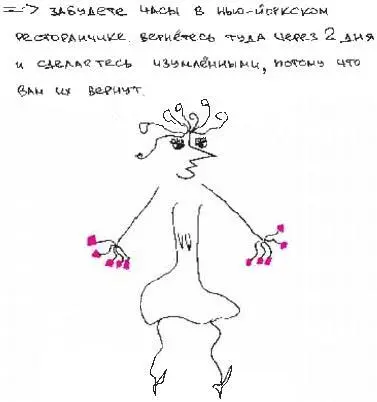 => ЗАБУДЕТЕ ЧАСЫ В НЬЮ-ЙОРКСКОМ
РЕСТОРАНЧИКЕ. ВЕРНЁТЕСЬ ТУДА ЧЕРЕЗ 2 ДНЯ
И СДЕЛАЕТЕСЬ ИЗУМЛЁННЫМИ, ПОТОМУ ЧТО
ВАМ ИХ ВЕРНУТ.